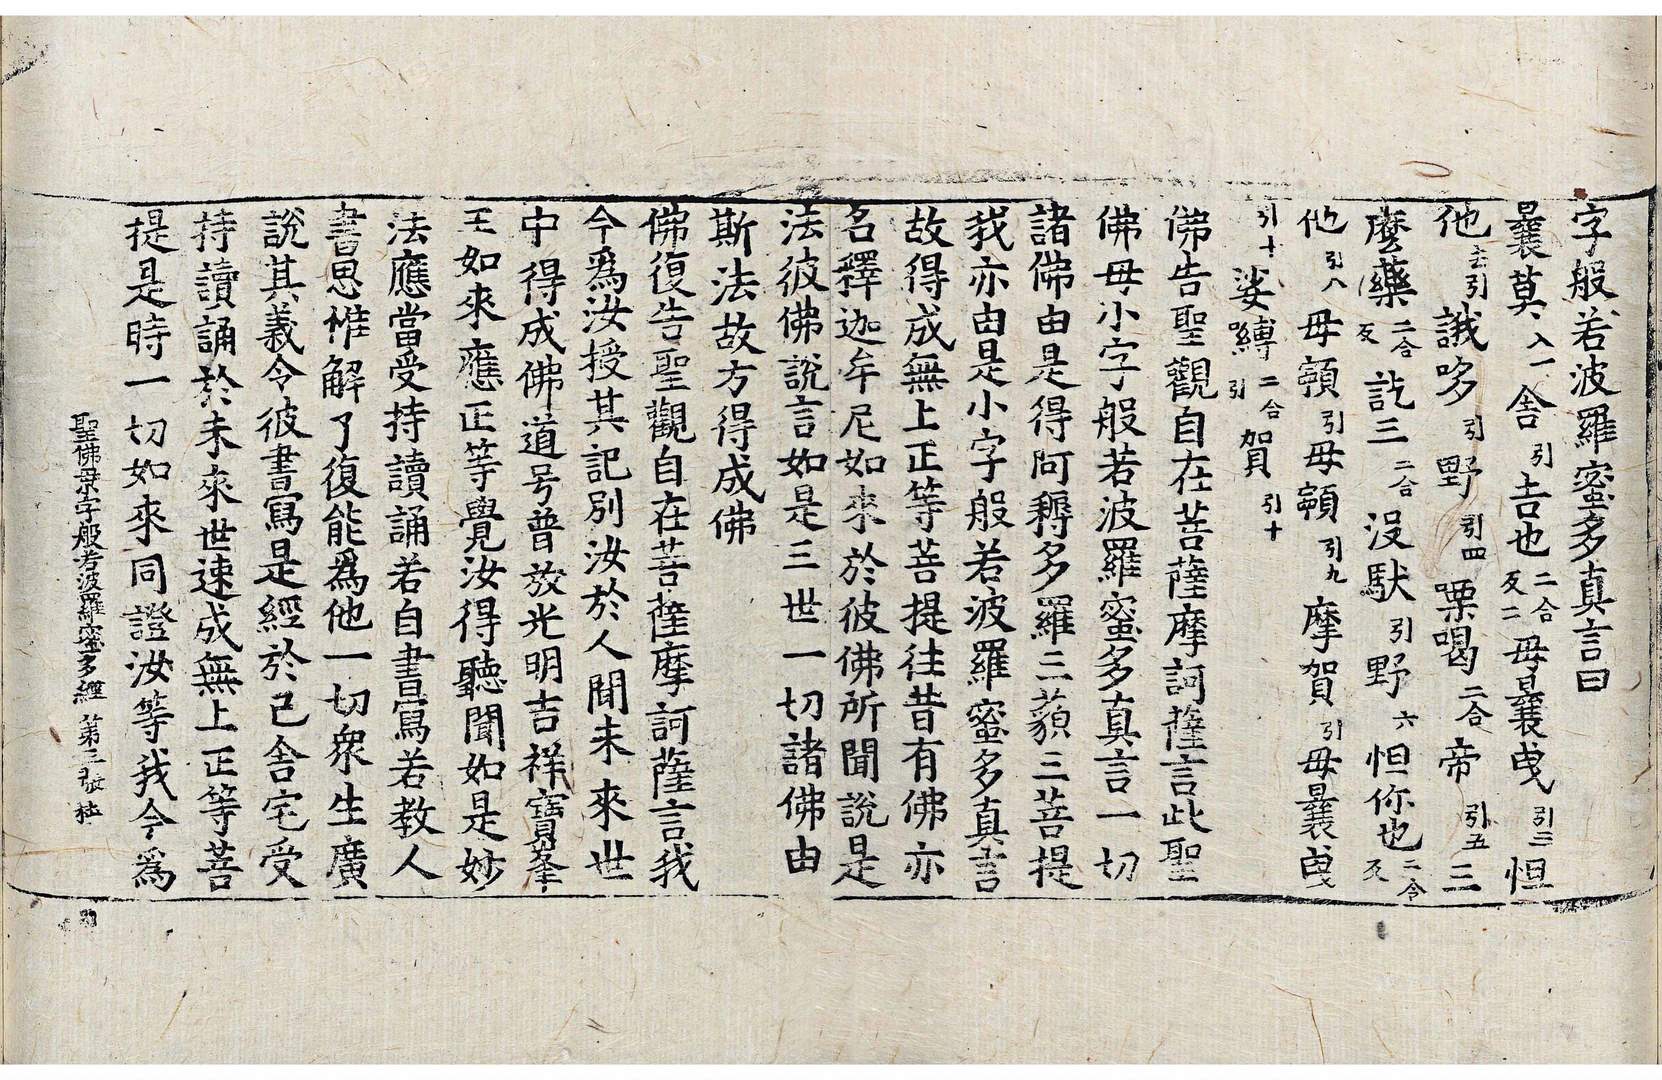 字般若波羅蜜多真言曰
曩莫入一舍引吉也二合反二母曩曳引三怛
他去引誐哆引野引四㗚喝二合帝引五三
麼藥二合反訖三二合沒馱引野六怛你也二合反
他引八母頓引母頓引九摩賀引母曩曳
引十娑嚩二合引賀引十
佛告聖觀自在菩薩摩訶薩言此聖
佛母小字般若波羅蜜多真言一切
諸佛由是得阿耨多羅三藐三菩提
我亦由是小字般若波羅蜜多真言
故得成無上正等菩提往昔有佛亦
名釋迦牟尼如來於彼佛所聞說是
法彼佛說言如是三世一切諸佛由
斯法故方得成佛
佛復告聖觀自在菩薩摩訶薩言我
今為汝授其記別汝於人間未來世
中得成佛道号普放光明吉祥寶峯
王如來應正等覺汝得聽聞如是妙
法應當受持讀誦若自書寫若教人
書思惟解了復能為他一切衆生廣
說其義令彼書寫是經於己舍宅受
持讀誦於未來世速成無上正等菩
提是時一切如來同證汝等我今為
聖佛母小字般若波羅蜜多經 第三張 㭍